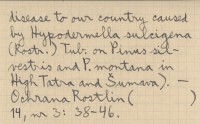 disease to our country caused
by Hypodermella sulcigena
(Rostr.) Tub. on Pinus sil-
vestris and P. montana in
High Tatra and Šumava). —
Ochrana Rostlin ( )
14, nr 3: 38-46.